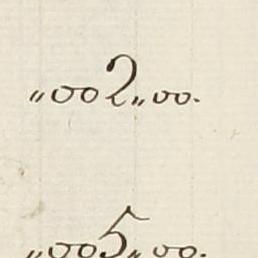 „002„00.
„005„00.